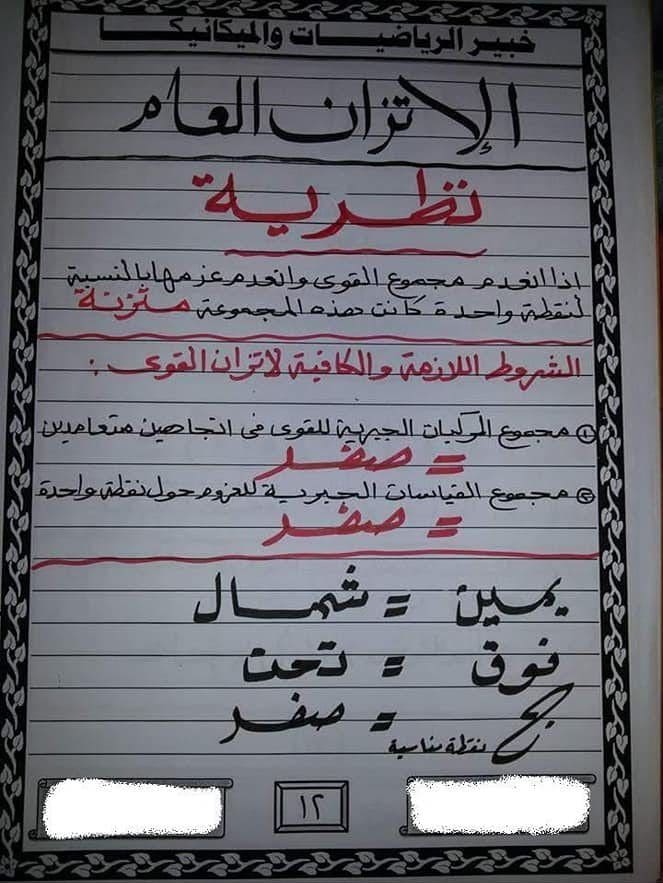 خبير الرياضيات والميكانيكا
الإتزان العام
نظرية
اذا انعدم مجموع القوى وانعدم عزمها بالنسبة
لنقطة واحدة كانت هذه المجموعة متزنة
الشروط اللازمة والكافية لاتزان القوى :
١ مجموع المركبات الجبرية للقوى فى اتجاهين متعامدين
= صفر
٢ مجموع القياسات الجبرية للعزوم حول نقطة واحدة
= صفر
يمين = شمال
فوق = تحت
ج = صفر
نقطة مناسبة
١٢